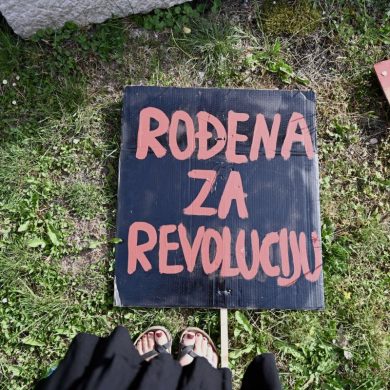 ROĐENA
ZA
REVOLUCIJU